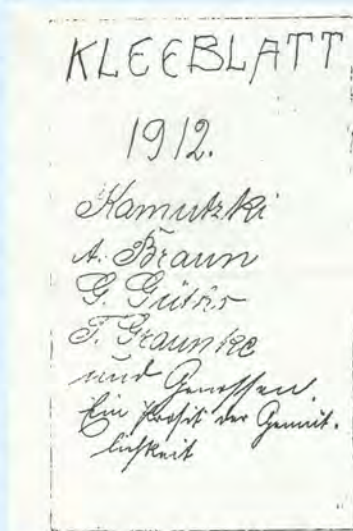 KLEEBLATT
1912.
Kamutzki
A. Braun
G. Güths
F. Graunke
und Genossen.
Ein Prosit der Gemüt-
lichkeit